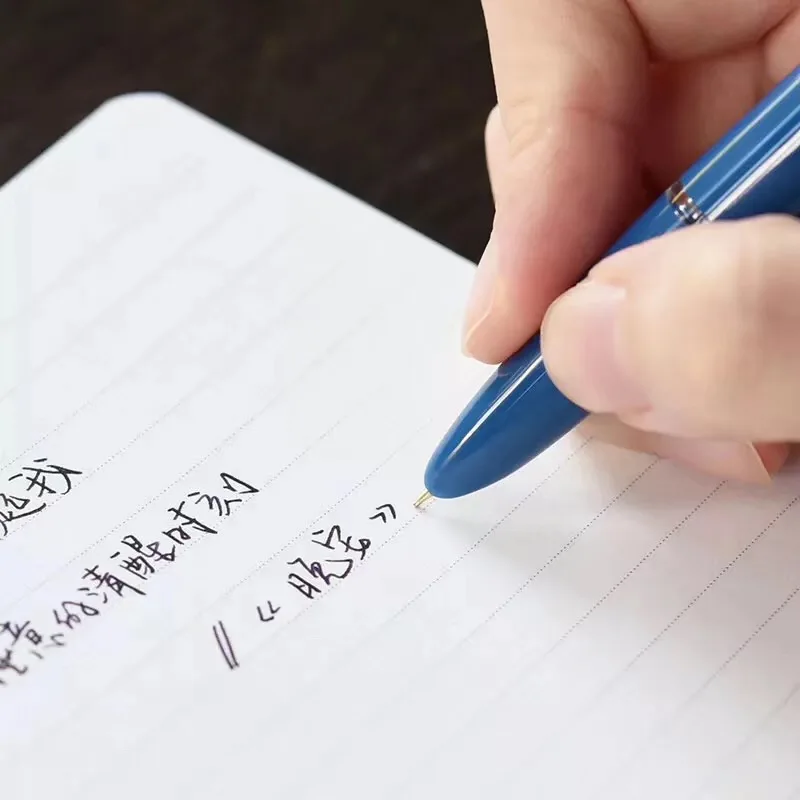 题我
意的清醒时刻
//《晚安》